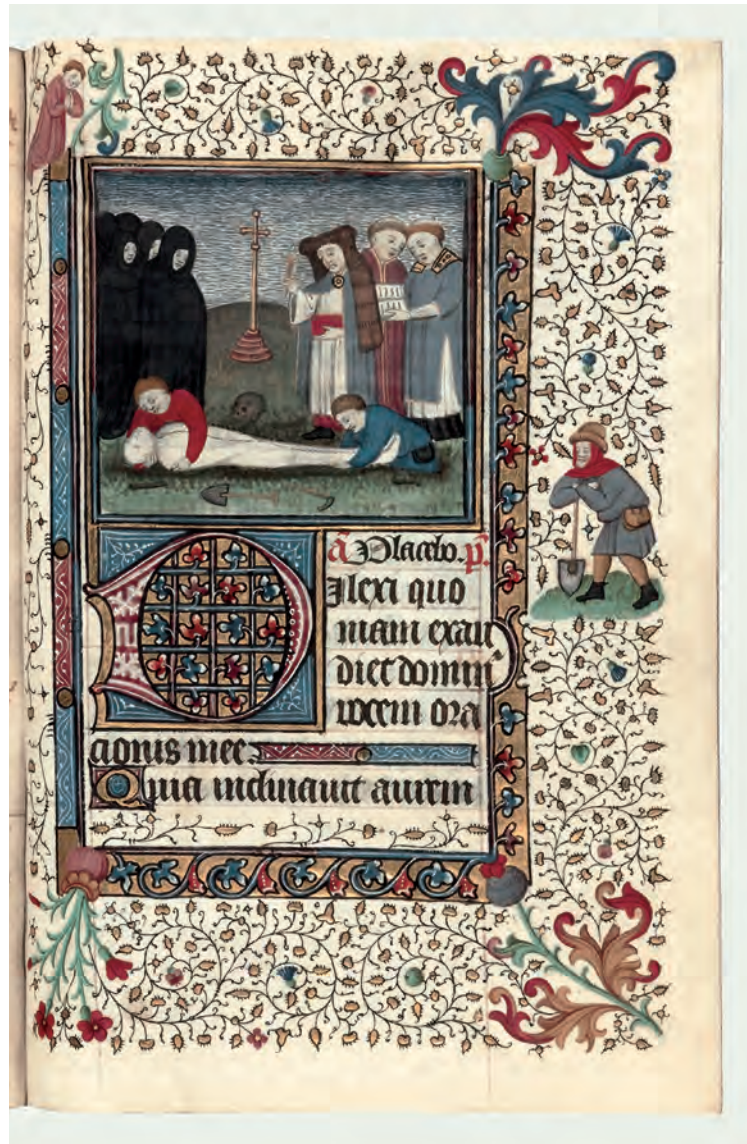 a Placebo. p̄s
Dilexi quo
niam exau
diet domin᷒
vocem ora
cionis mee.
Quia inclinauit aurem